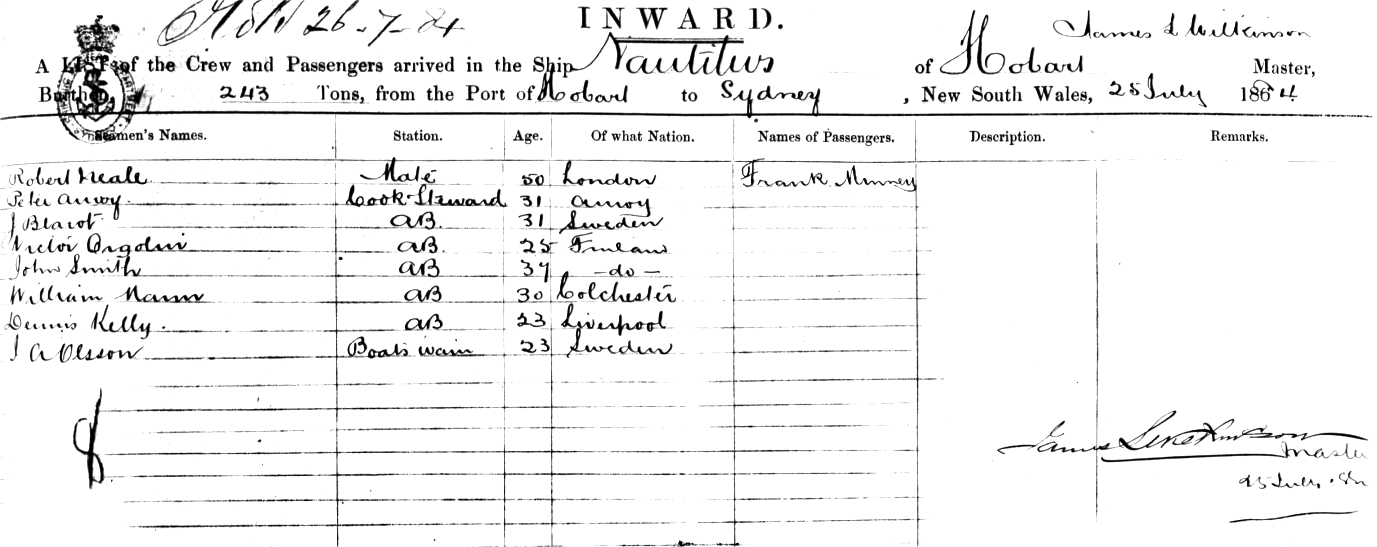 26-7-84
INWARD.
James L Wilkinson
A LIST of the Crew and Passengers arrived in the Ship Nautilus of Hobart Master,
Burthen, 243 Tons, from the Port of Hobart to Sydney, New South Wales, 25 July 1884
Seamen's Names. Station. Age. Of what Nation. Names of Passengers. Description. Remarks.
Robert Neale Mate 50 London Frank Minney
Peter Amoy. Cook-Steward 31 Amoy
J AB. 31 Sweden
Victor AB. 25 Finland
John Smith AB 37 -do-
William Mann AB 30 Colchester
Dennis Kelly. AB 23 Liverpool
J A Olsson Boatswain 23 Sweden
8
James Master
25 July. 84